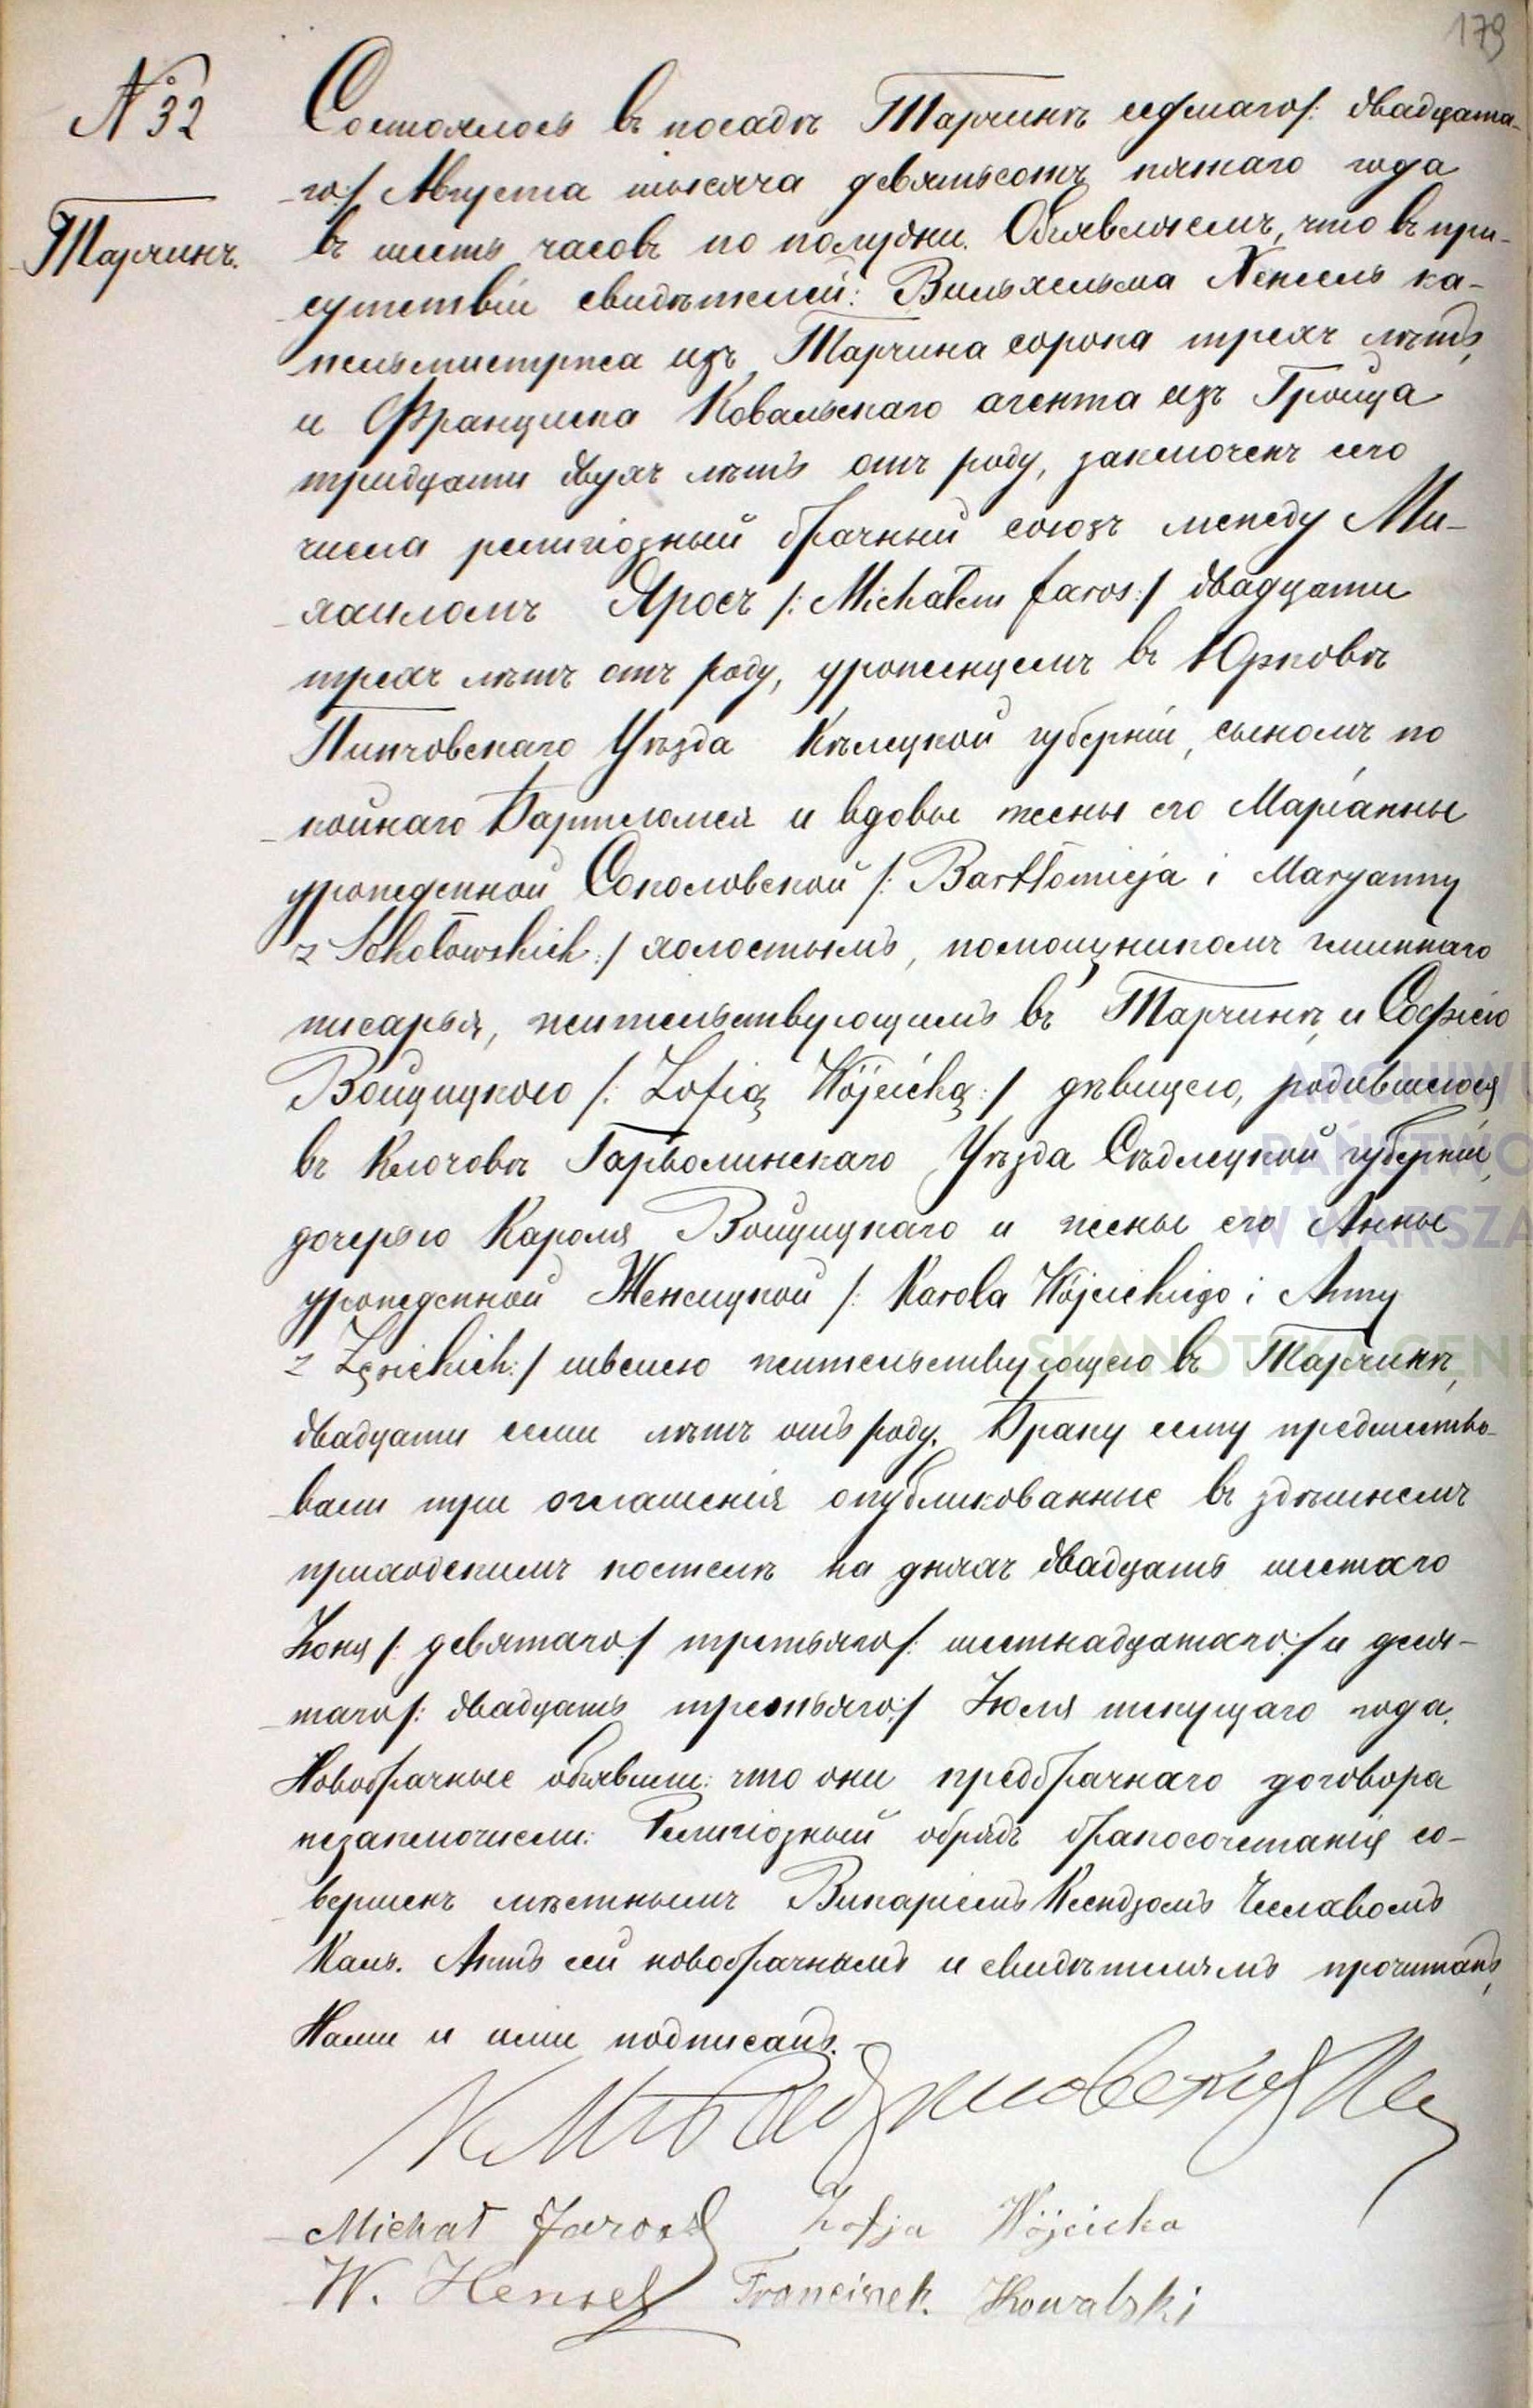 179
№ 32
Тарчинъ.
Состоялось въ посадѣ Тарчинѣ седьмаго /: двадцата-
го :/ Августа тысяча девятьсотъ пятаго года
въ шесть часовъ по полудни. Объявляемъ, что въ при-
сутствіи свидѣтелей: Вильхельма Хенсель ка-
пельмистржа изъ Тарчина сорока трехъ лѣтъ,
и Франциска Ковальскаго агента изъ Гройца
тридцати двухъ лѣтъ отъ роду, заключенъ сего
числа религіозный брачный союзъ между Ми-
хаиломъ Яросъ /: Michałem Jaros :/ двадцати
трехъ лѣтъ отъ роду, уроженцемъ въ Юрковѣ
Пинчовскаго Уѣзда Кѣлецкой губерніи, сыномъ по
койнаго Бартломея и вдовы жены его Маріанны
урожденной Соколовской /: Bartłomieja i Maryanny
z Sokołowskich :/ холостымъ, помощникомъ гминнаго
писаря, жительствующимъ въ Тарчинѣ, и Софіею
Войцицкою /: Zofią Wójcicką :/ дѣвицею, родившеюся
въ Ключовѣ Гарволинскаго Уѣзда Сѣдлецкой губерніи,
дочерью Кароля Войцицкаго и жены его Анны
урожденной Женсицкой /: Karola Wójcickiego i Anny
z Zęsickich :/ швеею жительствующею въ Тарчинѣ,
двадцати семи лѣтъ отъ роду. Браку сему предшество-
вали три оглашенія опубликованные въ здѣшнемъ
приходскимъ костелѣ на дняхъ двадцать шестаго
Іюня /: девятаго :/ третьяго /: шестнадцатаго :/ и деся-
таго /: двадцать третьяго :/ Іюля текущаго года.
Новобрачные объявили: что они предбрачнаго договора
незаключили: Религіозный обрядъ бракосочетанія со-
вершенъ мѣстнымъ Викаріемъ Ксендзомъ Чеславомъ
Каль. Актъ сей новобрачнымъ и свидѣтелямъ прочитанъ,
Нами и ими подписанъ.
Michał Jaros Zofja Wójcicka
W. Hensel Franciszek Kowalski
ARCHIWU
PAŃSTWO
W WARSZA
SKANOTEKA.GENE